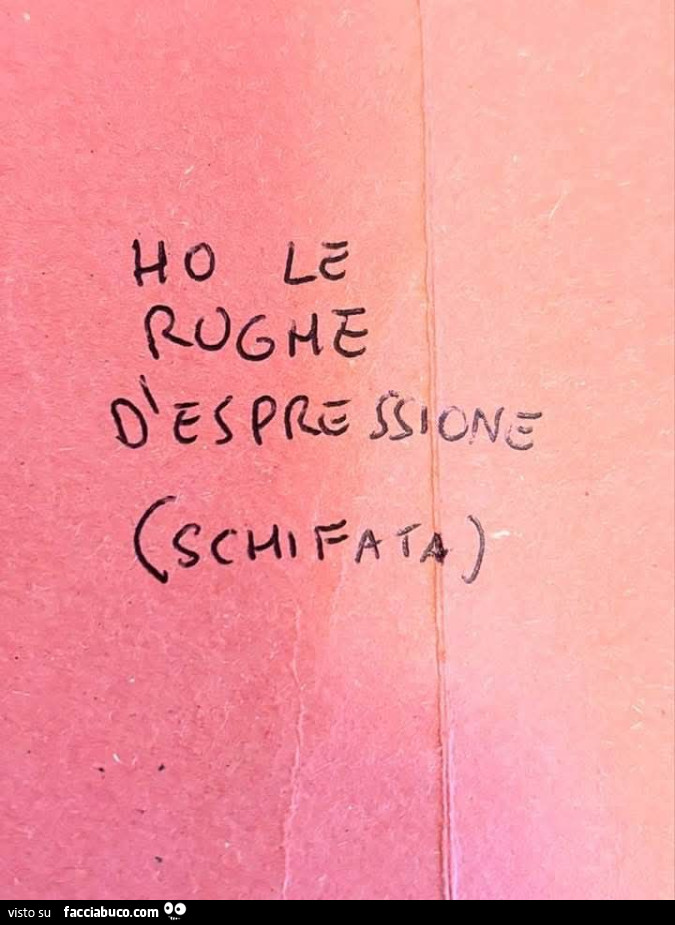 HO LE
RUGHE
D'ESPRESSIONE
(SCHIFATA)
visto su facciabuco.com